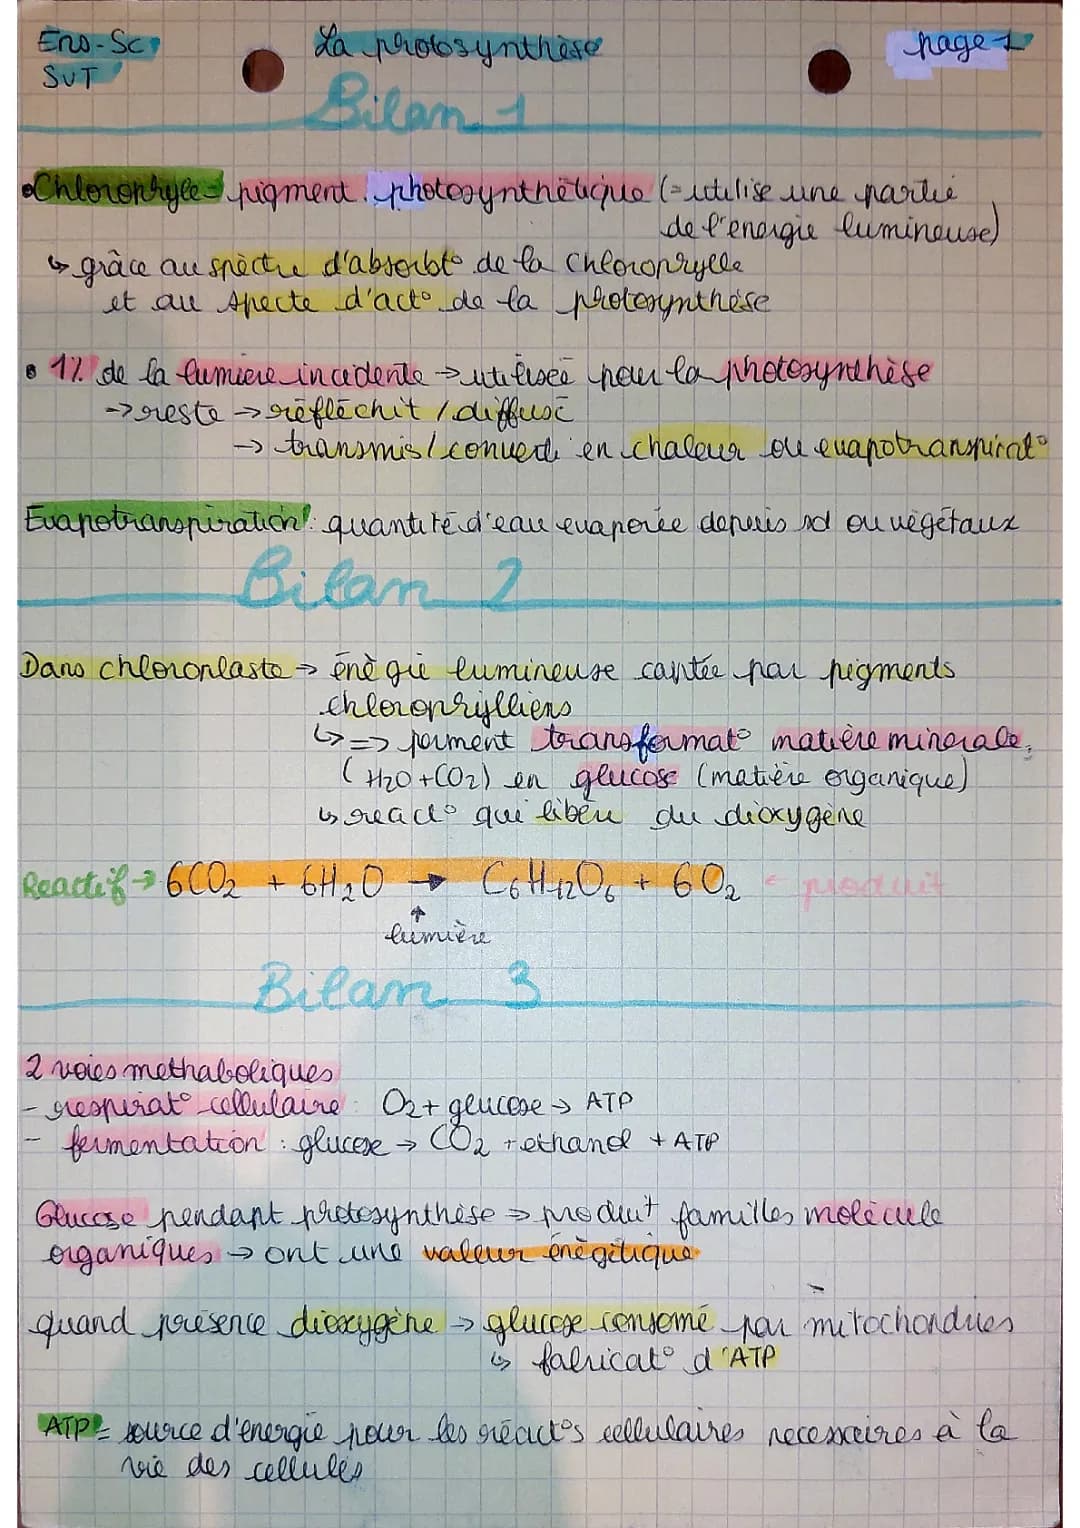 Ens-Sc
La photosynthèse
page 1
SVT
Bilan 1
•Chlorophylle= pigment photosynthétique (=utilise une partie
de l'energie lumineuse)
↳ grâce au spèctre d'absorbt° de la chlorophylle
et au specte d'act° de la photosynthèse
• 1% de la lumière incidente → utilisée pour la photosynthèse
→ reste → réfléchit / diffusé
→ transmis / converti en chaleur ou evapotranspirat°
Evapotranspiration: quantité d'eau evaporée depuis sol ou végétaux
Bilan 2
Dans chloroplaste → énègie lumineuse captée par pigments
chlorophylliens
↳ => perment transformat° matière minerale
(H2O+CO2) en glucose (matière organique)
↳ react° qui libère du dioxygène
Reactif → 6CO₂ + 6H₂O → C₆H₁₂O₆ + 6O₂ ← produit
↑
lumière
Bilan 3
2 voies methaboliques
- respirat° cellulaire: O₂ + glucose → ATP
- fermentation : glucose → CO₂ + ethanol + ATP
Glucose pendant photosynthèse → produit familles molécule
organiques → ont une valeur énégétique
quand présence dioxygène → glucose consomé par mitochondries
↳ fabricat° d'ATP
ATP = source d'energie pour les réact°s cellulaires necessaires à la
vie des cellules